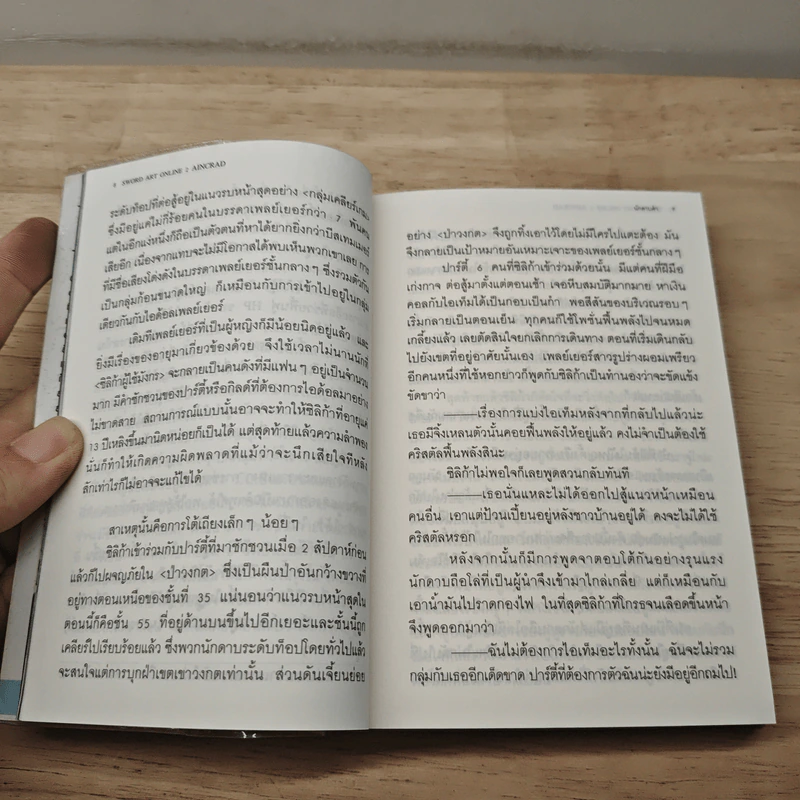 8 SWORD ART ONLINE 2 AINCRAD
ระดับท็อปที่ต่อสู้อยู่ในแนวรบหน้าสุดอย่าง <กลุ่มเคลียร์เกม>
ซึ่งมีอยู่แค่ไม่กี่ร้อยคนในบรรดาเพลย์เยอร์กว่า 7 พันคน
แต่ในอีกแง่หนึ่งก็ถือเป็นตัวตนที่หาได้ยากยิ่งกว่าบีสเทมเมอร์
เสียอีก เนื่องจากแทบจะไม่มีโอกาสได้พบเห็นพวกเขาเลย การ
ที่มีชื่อเสียงโด่งดังในบรรดาเพลย์เยอร์ชั้นกลางๆ ซึ่งรวมตัวกัน
เป็นกลุ่มก้อนขนาดใหญ่ ก็เหมือนกับการเข้าไปอยู่ในกลุ่ม
เดียวกันกับไอดอลเพลย์เยอร์
เดิมทีเพลย์เยอร์ที่เป็นผู้หญิงก็มีน้อยนิดอยู่แล้ว และ
ยิ่งมีเรื่องของอายุมาเกี่ยวข้องด้วย จึงใช้เวลาไม่นานนักที่
<ซิลิก้าผู้ใช้มังกร> จะกลายเป็นคนดังที่มีแฟนๆ อยู่เป็นจำนวน
มาก มีคำชักชวนของปาร์ตี้หรือกิลด์ที่ต้องการไอดอลมาอย่าง
ไม่ขาดสาย สถานการณ์แบบนั้นอาจจะทำให้ซิลิก้าที่อายุแค่
13 ปีเหลิงขึ้นมานิดหน่อยก็เป็นได้ แต่สุดท้ายแล้วความลำพอง
นั่นก็ทำให้เกิดความผิดพลาดที่แม้ว่าจะนึกเสียใจทีหลัง
สักเท่าไรก็ไม่อาจจะแก้ไขได้
สาเหตุนั้นคือการโต้เถียงเล็กๆ น้อยๆ
ซิลิก้าเข้าร่วมกับปาร์ตี้ที่มาชักชวนเมื่อ 2 สัปดาห์ก่อน
แล้วก็ไปผจญภัยใน <ป่าวงกต> ซึ่งเป็นผืนป่าอันกว้างขวางที่
อยู่ทางตอนเหนือของชั้นที่ 35 แน่นอนว่าแนวรบหน้าสุดใน
ตอนนี้ก็คือชั้น 55 ที่อยู่ด้านบนขึ้นไปอีกเยอะและชั้นนี้ถูก
เคลียร์ไปเรียบร้อยแล้ว ซึ่งพวกนักดาบระดับท็อปโดยทั่วไปแล้ว
จะสนใจแต่การบุกฝ่าเขตเขาวงกตเท่านั้น ส่วนดันเจี้ยนย่อย
อย่าง <ป่าวงกต> จึงถูกทิ้งเอาไว้โดยไม่มีใครไปแตะต้อง มัน
จึงกลายเป็นเป้าหมายอันเหมาะเจาะของเพลย์เยอร์ชั้นกลางๆ
ปาร์ตี้ 6 คนที่ซิลิก้าเข้าร่วมด้วยนั้น มีแต่คนที่ฝีมือ
เก่งกาจ ต่อสู้มาตั้งแต่ตอนเช้า เจอหีบสมบัติมากมาย หาเงิน
คอลกับไอเท็มได้เป็นกอบเป็นกำ พอสีสันของบริเวณรอบๆ
เริ่มกลายเป็นตอนเย็น ทุกคนก็ใช้โพชั่นฟื้นพลังไปจนหมด
เกลี้ยงแล้ว เลยตัดสินใจยกเลิกการเดินทาง ตอนที่เริ่มเดินกลับ
ไปยังเขตที่อยู่อาศัยนั้นเอง เพลย์เยอร์สาวรูปร่างผอมเพรียว
อีกคนหนึ่งที่ใช้หอกยาวก็พูดกับซิลิก้าเป็นทำนองว่าจะขัดแข้ง
ขัดขาว่า
———เรื่องการแบ่งไอเท็มหลังจากที่กลับไปแล้วน่ะ
เธอมีจิ้งเหลนตัวนั้นคอยฟื้นพลังให้อยู่แล้ว คงไม่จำเป็นต้องใช้
คริสตัลฟื้นพลังสินะ
ซิลิก้าไม่พอใจก็เลยพูดสวนกลับทันที
———เธอนั่นแหละไม่ได้ออกไปสู้แนวหน้าเหมือน
คนอื่น เอาแต่ป้วนเปี้ยนอยู่หลังชาวบ้านอยู่ได้ คงจะไม่ได้ใช้
คริสตัลหรอก
หลังจากนั้นก็มีการพูดจาตอบโต้กันอย่างรุนแรง
นักดาบถือโล่ที่เป็นผู้นำจึงเข้ามาไกล่เกลี่ย แต่ก็เหมือนกับ
เอาน้ำมันไปราดกองไฟ ในที่สุดซิลิก้าที่โกรธจนเลือดขึ้นหน้า
จึงพูดออกมาว่า
———ฉันไม่ต้องการไอเท็มอะไรทั้งนั้น ฉันจะไม่รวม
กลุ่มกับเธออีกเด็ดขาด ปาร์ตี้ที่ต้องการตัวฉันน่ะยังมีอยู่อีกถมไป!